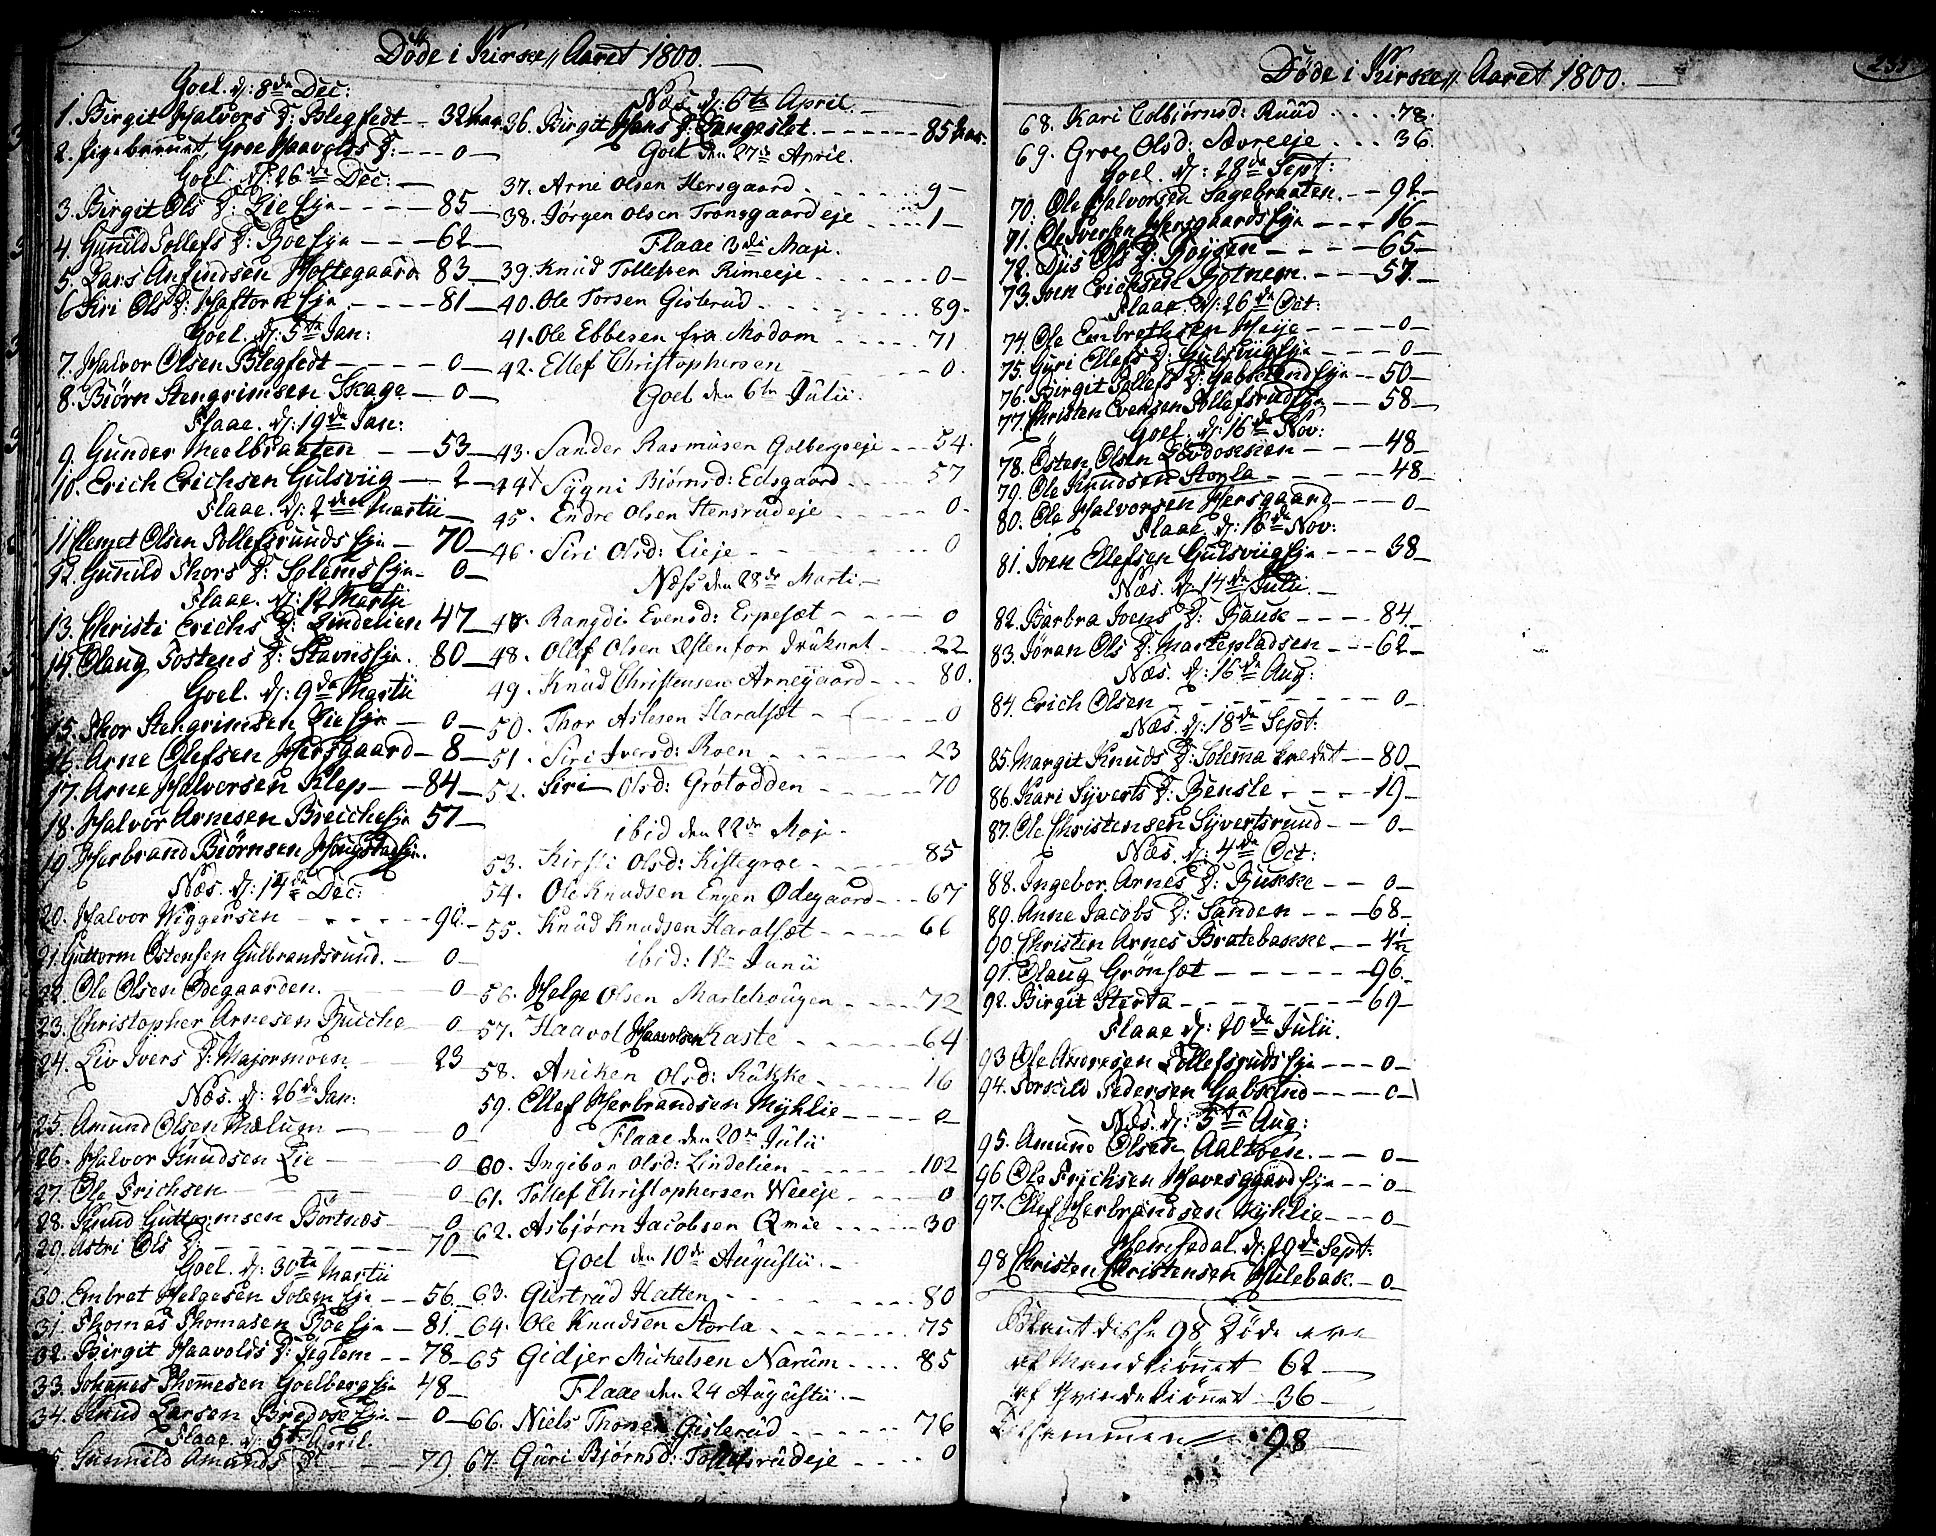 Döde i Kirke// Aaret 1800.
Goel. d: 8de Dec:
1. Birgit Halvors D: Blegfedt — 32 Aar
2. Groe Haavolds D: — 0 —
Goel. d: 26de Dec: —
3. Birgit Ols D: Lie Eje — 85 —
4. Gunild Tollefs D: Boe Eje — 62 —
5. Lars Anfindsen Holtegaard 83 —
6. Siri Ols D: Haftorn Eje — 81 —
Goel. d: 5te Jan:
7. Halvor Olsen Blegfedt — 0 —
8. Biörn Stengrimsen Skage — 0 —
Flaae. d: 19de Jan:
9. Gunder Meelbraaten — 53 —
10. Erich Erichsen Gulsviig — 2 —
Flaae. d: 2den Martii
11. Clemet Olsen Tollefsruuds Eje — 70 —
12. Gunild Thors D: Solems Eje — 0 —
Flaae. d: 12 Martii
13. Christi Erichs D: Lindelien 47 —
14. Olaug Tostens D: Stavns Eje. 80 —
Goel. d: 9de Martii
15. Thor Stengrimsen Lie Eje — 0 —
16. Arne Olefsen Hersgaard — 8 —
17. Arne Halvorsen Klep — 84 —
18. Halvor Arnesen Breiche Eje 57 —
19. Herbrand Biörnsen
Næs. d: 14de Dec:
20. Halvor Wiggersen — 90. —
21. Guttorm Östensen Gulbrandsruud. — 0 —
22. Ole Olsen Ödegaarden. — 0 —
23. Christopher Arnesen Bucche 0 —
24. Liv Ivers D: Majormoen. 23
Næs. d: 26de Jan:
25. Amund Olsen Mælum — 0
26. Halvor Knudsen Lie — 0
27. Ole Erichsen — 0
28. Knud Guttormsen Börtnæs — 0
29. Astri Ols D: — 70 —
Goel. d: 30te Martii
30. Embret Helgesen Solem Eje — 56.
31. Thomas Thomasen Böe Eje — 81.
32. Birgit Haavolds D: Jeglem — 78 —
33. Johannes Thomesen Goelberg Eje 48 —
34. Knud Larsen Bredose Eje — 0 —
Flaae. d: 5te April.
35. Gunnild Amunds D: — 79.
Næs d: 6te April
36. Birgit Hans D: Tangeslet. — 85 Aar.
Goel den 27de April.
37. Arne Olsen Hersgaard. — 9 —
38. Jörgen Olsen Tronsgaard eje — 1 —
Flaae 3de Maji.
39. Knud Tollefsen Rimeeje. — 0 —
40. Ole Torsen Gislerud. — 89.
41. Ole Ebbesen fra Modom — 71
42. Ellef Christophersen — 0.
Goel den 6te Julii.
43. Sander Rasmusen Golbergseje — 54.
44. Sygni Biørnsd: Edsgaard — 57
45. Endre Olsen Stensrudeje — 0.
46. Siri Olsd: Lieje — 0
Næss den 28de Marti —
47. Rangdi Evensd: Erpesæt — 0
48. Ollef Olsen Østenfor druknet — 22
49. Knud Christensen Arnegaard — 80.
50. Thor Aslesen Haralsæt — 0
51. Siri Iversd: Roen — 23
52. Siri Olsd: Grøtodden — 70
ibid den 22de Maji.
53. Kirsti Olsd: Kistegroe — 85
54. Ole Knudsen Engen Ødegaard — 67
55. Knud Knudsen Haralsæt — 66
ibid: Junii
56. Helge Olsen Martehougen — 72
57. Haavol Haavolsen Kaste — 64
58. Aniken Olsd: Rukke — 16
59. Ellef Herbrandsen Myhlie — 2
Flaae den 20de Julii
60. Ingibor Olsd: Lindelien — 102
61. Tollef Christophersen Weeeje — 0
62. Asbjørn Jacobsen — 30
Goel den 10de Augustii. —
63. Gurtrud Hatten — 80
64. Ole Knudsen Storla — 75
65 Gidjer Michelsen Narum — 85
Flaae den 24 Augustii —
66. Niels Gislerud — 76
67. Guri Bjørnsd: Tollefsrudeje — 0
Döde i Kirke// Aaret 1800. —
68. Kari Colbjørnsd: Ruud — 78.
69. Groe Olsd: Sævreeje — 36.
Goel. d: 28de Sept:
70. Ole Halvorsen Sagebraaten. — 92 —
71. Ole Iversen Hersgaards Eje — 16 —
72. Djis Ols D: Töysen — 65 —
73. Joen Erichsen Botnem. — 57. —
Flaae. d: 26de Oct:
74. Ole Embrethsen Heije — 0 —
75. Gyri Ellefs D: Gulsviig Eje — 0 —
76. Birgit Tollefs D: Gabskind Eje — 50 —
77. Christen Evensen Tollefsrud Eje — 58 —
Goel. d: 16de Nov:
78. Östen Olsen Lövdoseneen — 48 —
79. Ole Knudsen Storla — 48
80. Ole Halvorsen Hersgaard — 0 —
Flaae. d: 16de Nov:
81. Joen Ellefsen Gulsviig Eje — 38 —
Næs. d: 14de Julii. —
82. Barbra Joens D: Bauk — 84 —
83. Jöran Ols D: Markepladsen — 62 —
Næs. d: 16de Aug:
84. Erich Olsen — 0 —
Næs. d: 18de Sept:
85. Margit Knuds D: Solemma — 80 —
86. Kari Syverts D: Bensle — 19 —
87. Ole Christensen Syvertsruud — 0 —
Næs. d: 4de Oct:
88. Ingebor Arnes D: Bukke — 0 —
89. Anne Jacobs D: Sanden — 68 —
90. Christen Arnes Bratebakke —
91. Olaug Grönsæt — 96. —
92. Birgit Sterta — 69 —
Flaae d: 20de Julii.
93 Ole Andresen Tollefsruds Eje — 0 —
94. Torkild Pedersen Gabskind — 0 —
Næs. d: 5te Aug:
95. Amund Olsen Aaltven. — 0 —
96 Ole Erichsen Haversgaard Eje — 0 —
97. Ellef Herbrandsen Myhlie — 0 —
Hemsedal d: 29de Sept:
98 Christen Christensen Hulebak — 0 —
Iblant disse 98 Döde ere
af Mandkiönnet 62 —
af Qvindekiönnet 36 —
Tilsammen 98